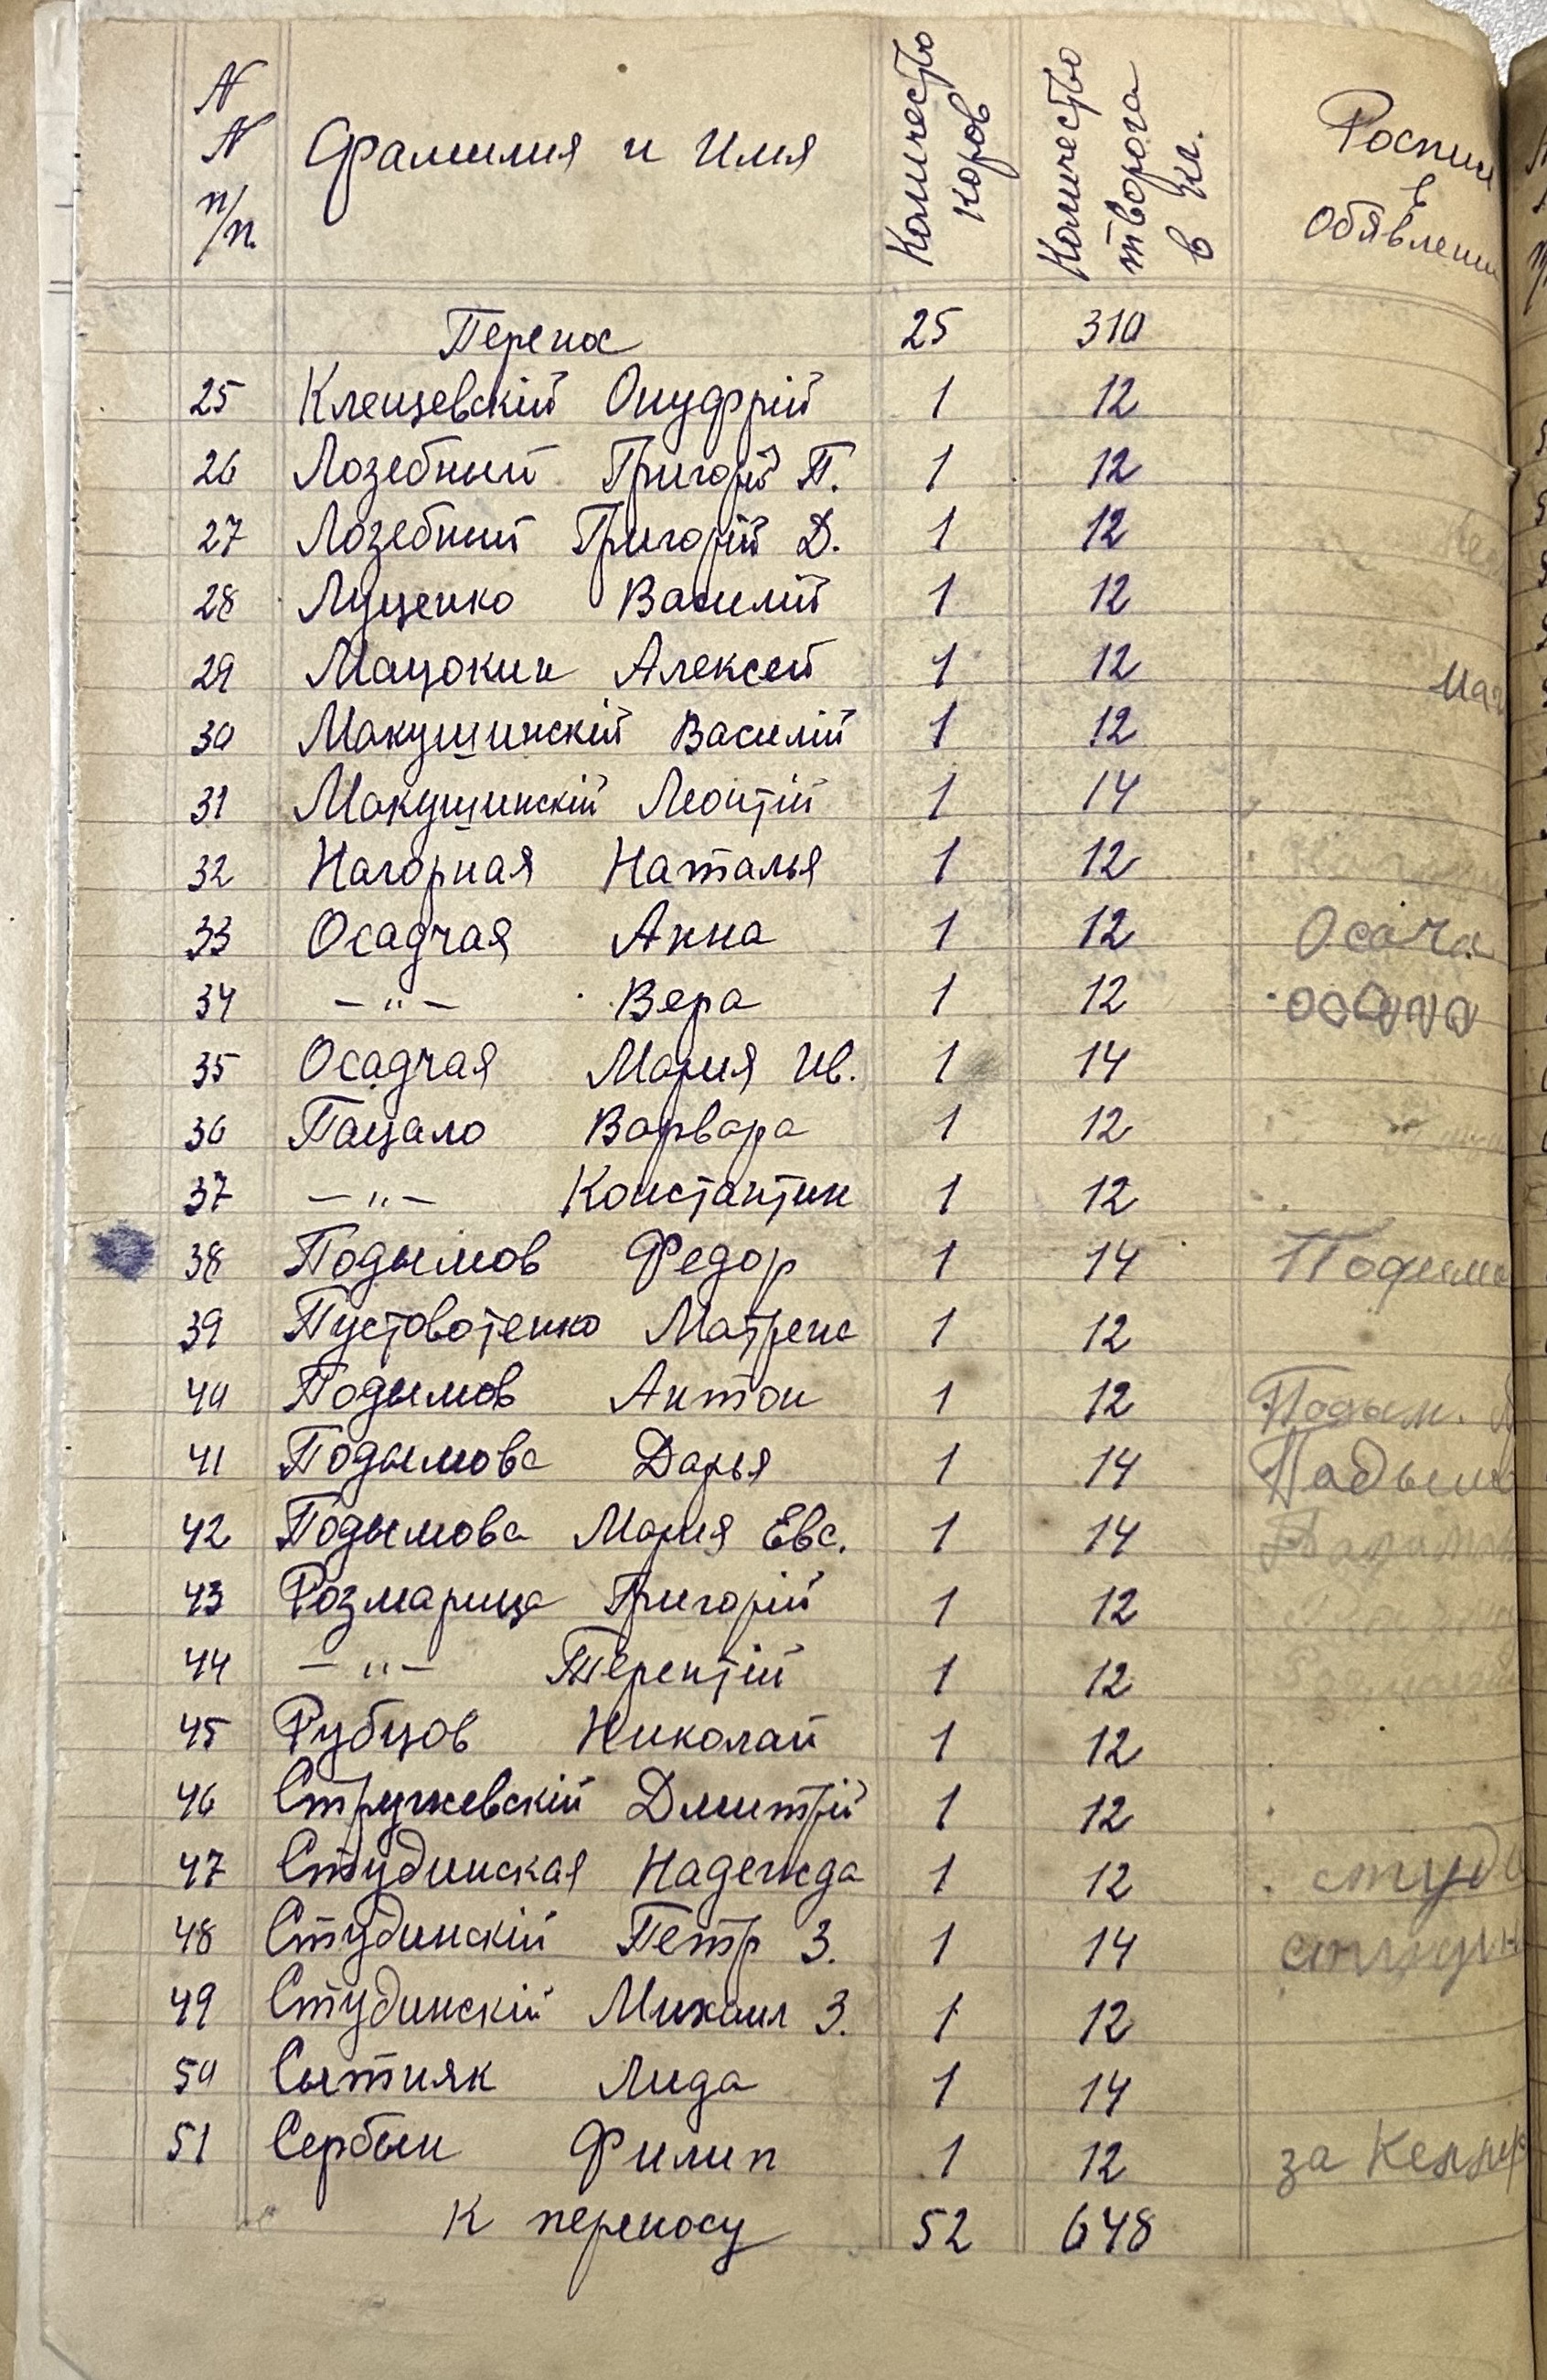 N N п/п. Фамилия и Имя Количество коров Количество творога в кг. Роспис в обявлении
Перенос 25 310
25 Клещевскій Онуфрій 1 12
26 Лозебный Григорій П. 1 12
27 Лозебный Григорій Д. 1 12
28 Луценко Василій 1 12
29 Мацокин Алексей 1 12 Мац
30 Макушинскій Василій 1 12
31 Макушинскій Леонтій 1 14
32 Нагорная Наталья 1 12
33 Осадчая Анна 1 12 Осача
34 —"— Вера 1 12
35 Осадчая Мария Ив. 1 14
36 Пацало Варвара 1 12
37 —"— Константин 1 12
38 Подымов Федор 1 14 Подымо
39 Пустовотенко Матрена 1 12
40 Подымов Антон 1 12 Подым.
41 Подымова Дарья 1 14 Падымо
42 Подымова Мария Евс. 1 14
43 Розмарица Григорій 1 12
44 —"— Терентій 1 12
45 Рубцов Николай 1 12
46 Стружевскій Дмитрій 1 12
47 Студинская Надежда 1 12 студ
48 Студинскій Петр З. 1 14 студин
49 Студинскій Михаил З. 1 12
50 Сытняк Лида 1 14
51 Сербын Филип 1 12 за
К переносу 52 648